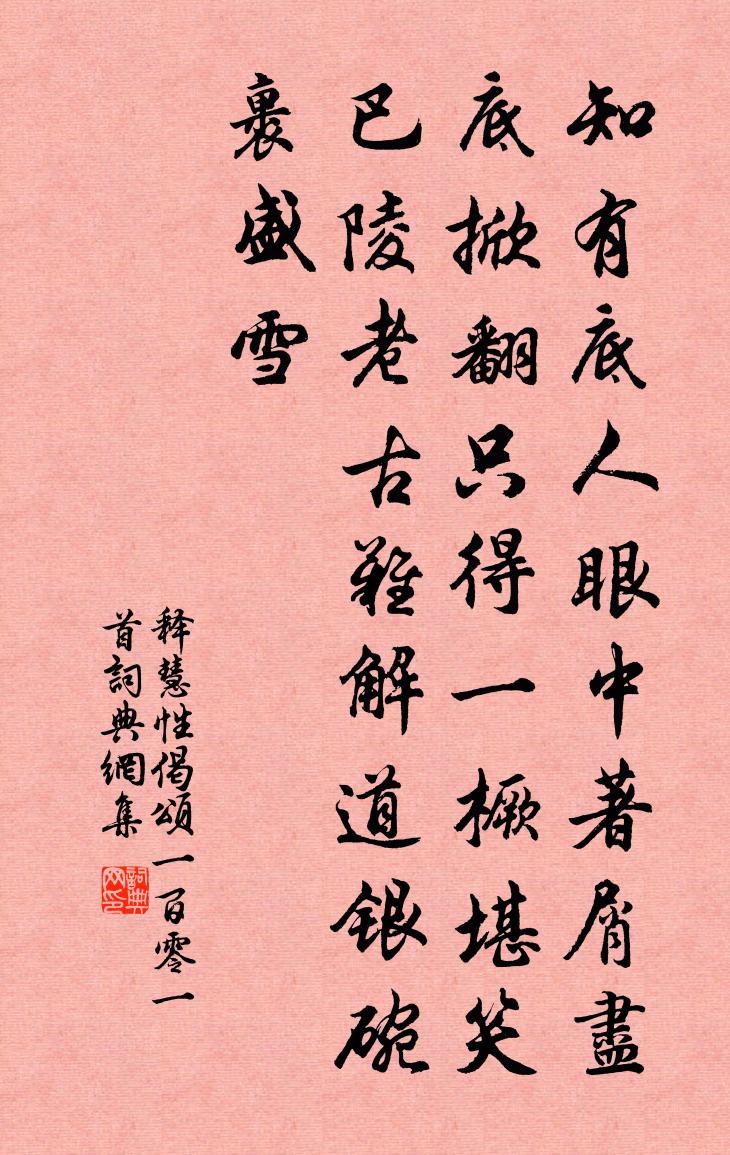 知有底人眼中著屑盡
底掀翻只得一橛堪笑
巴陵老古難解道銀碗
裏盛雪
释慧性偈頌一百零一
首詞典網集
詞典网印